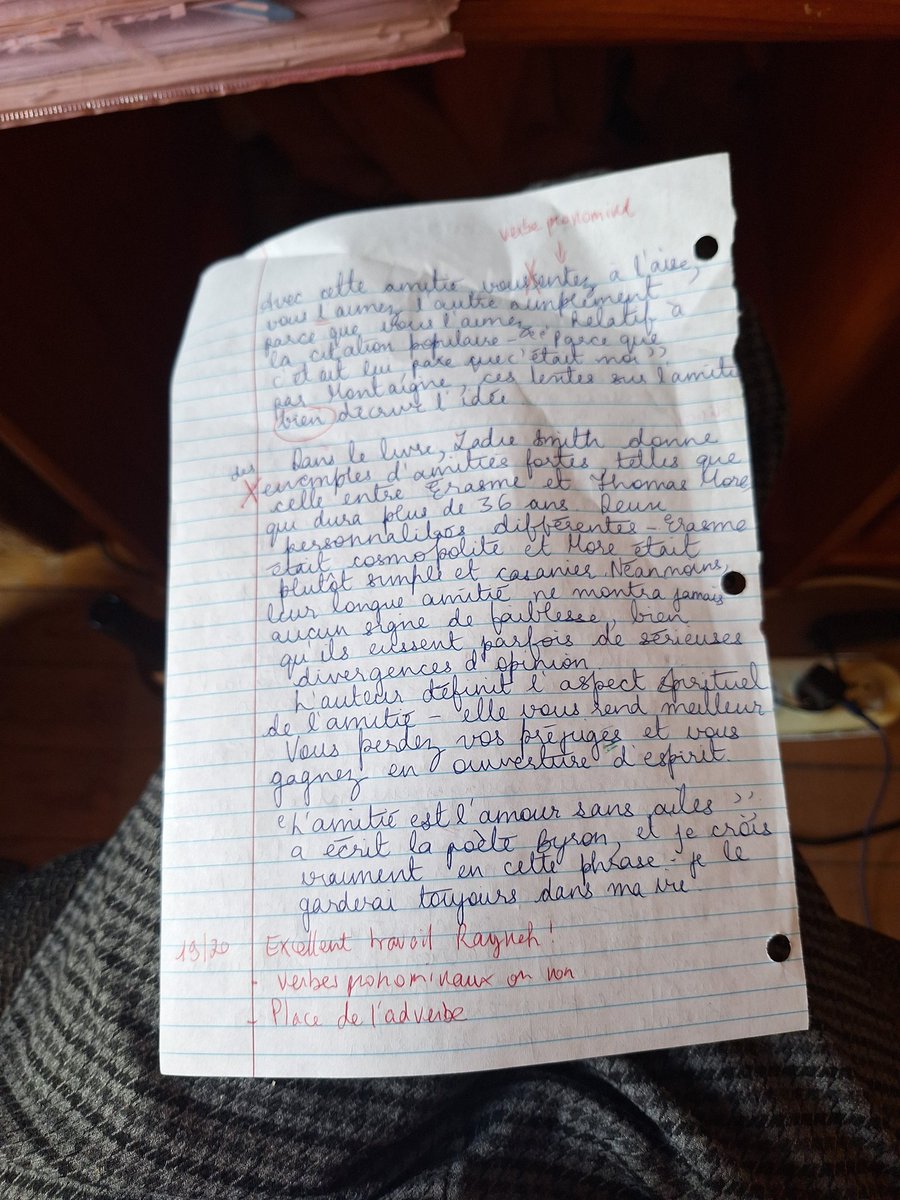 verbe pronominal
Avec cette amitié vous sentez à l'aise,
vous l'aimez l'autre simplement
parce que vous l'aimez. Relatif à
la citation populaire - "Parce que
c'était lui parce que c'était moi"
par Montaigne, ces textes sur l'amitié
bien décrivent l'idée
Dans le livre, Zadie Smith donne
des
exemples d'amitiés fortes, telles que
celle entre Erasme et Thomas More,
qui dura plus de 36 ans. Deux
personnalités différentes - Erasme
était cosmopolite et More était
plutôt simple et casanier. Néanmoins,
leur longue amitié ne montra jamais
aucun signe de faiblesse, bien
qu'ils eussent parfois de sérieuses
divergences d'opinion.
L'auteur définit l'aspect spirituel
de l'amitié - elle vous rend meilleur
Vous perdez vos préjugés et vous
gagnez en ouverture d'espirit.
"L'amitié est l'amour sans ailes"
a écrit la poète Byron, et je crois
vraiment en cette phrase - je le
garderai toujours dans ma vie.
19/20 Excellent travail Rayneh!
- Verbes pronominaux ou non
- Place de l'adverbe